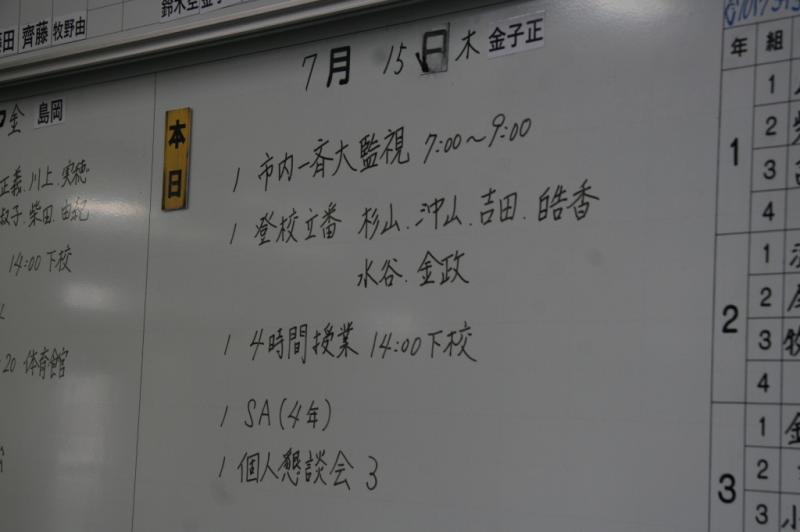 齊藤 牧野由
7月 15日 木 金子正
金 島岡
本日
正義.川上.実穂
叔子.柴田.由紀
14:00下校
20 体育館
1 市内一斉大監視 7:00〜9:00
1 登校立番 杉山.沖山.吉田.皓香
水谷.金政
1 4時間授業 14:00下校
1 SA(4年)
1 個人懇談会 3
年 組
1 1
2
3
4
2 1
2
3 牧
4
3 1 金
2
3 小